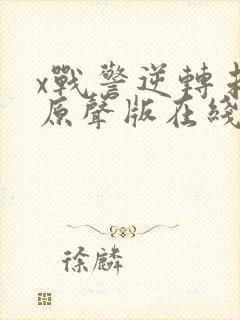 x戰警逆轉
原聲版在綫
徐麟